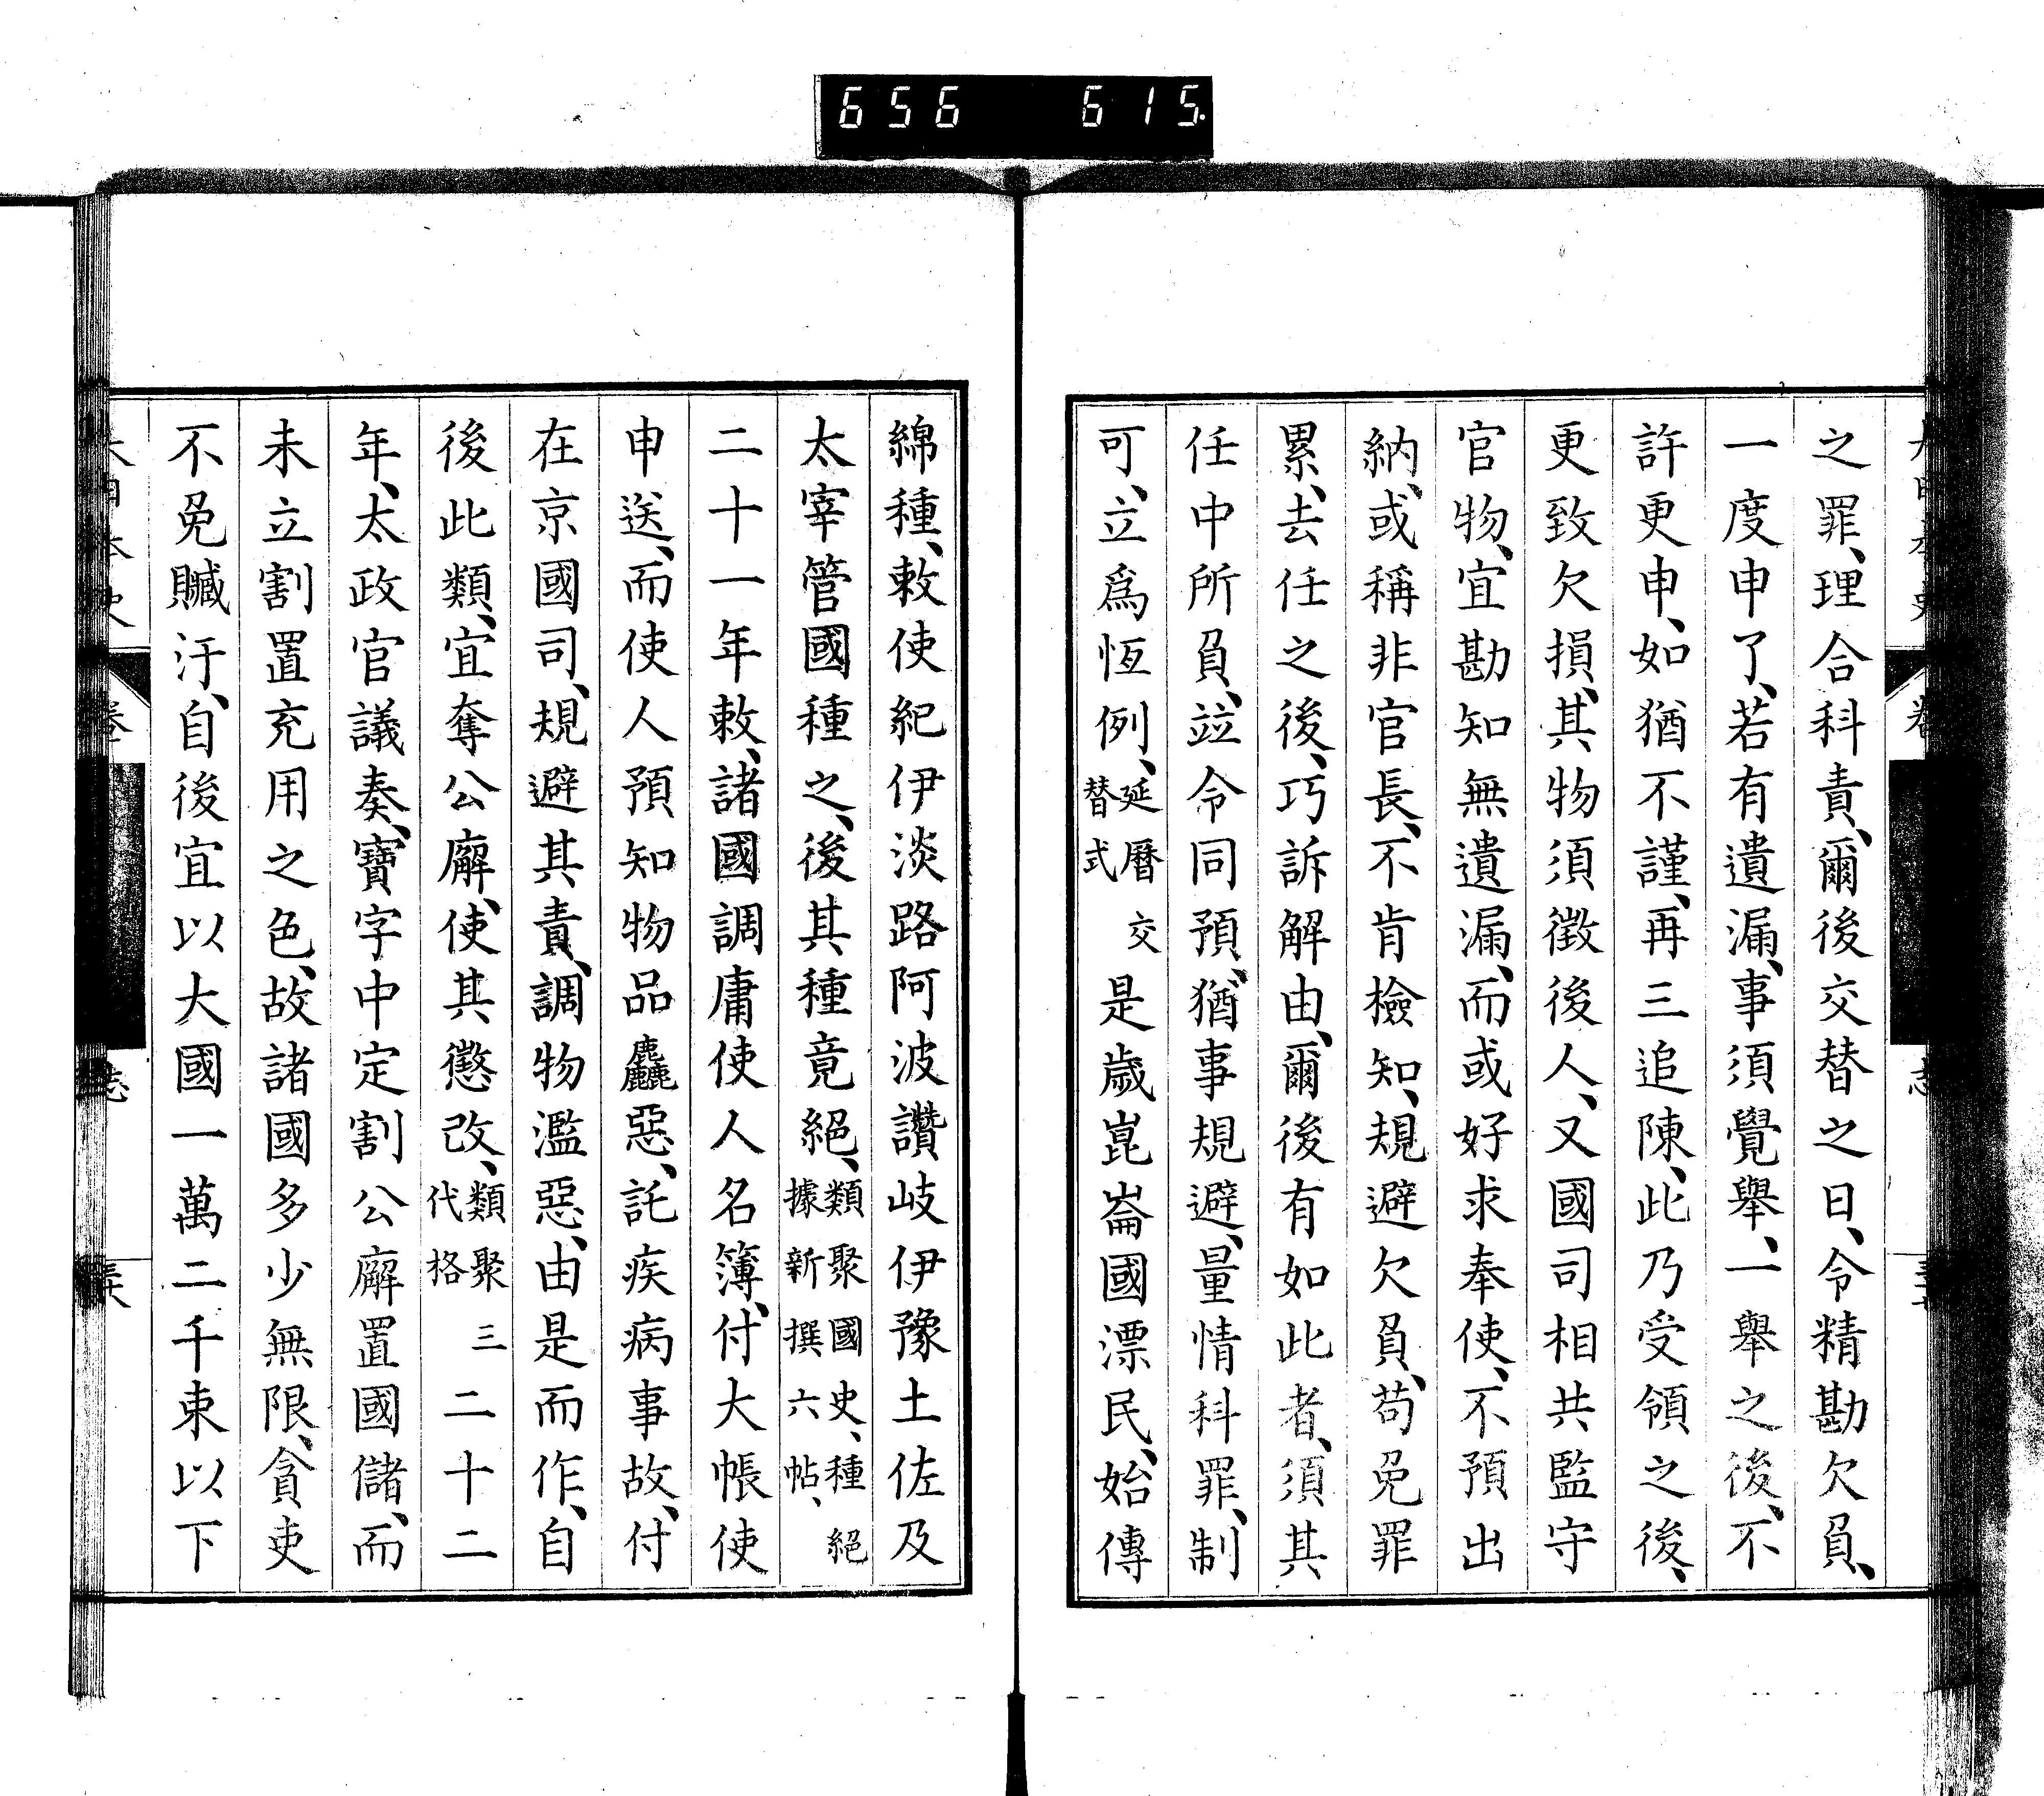 656 615.
之罪、理合科責、爾後交替之日、令精勘欠負、
一度申了、若有遺漏、事須覺舉、一舉之後、不
許更申、如猶不謹、再三追陳、此乃受領之後、
更致欠損、其物須徵後人、又國司相共監守
官物、宜勘知無遺漏、而或好求奉使、不預出
納、或稱非官長、不肯檢知、規避欠負、苟免罪
累、去任之後、巧訴解由、爾後有如此者、須其
任中所負、竝令同預、猶事規避、量情科罪、制
可、立爲恆例、延曆交替式 是歲崑崙國漂民、始傳
綿種、敕使紀伊淡路阿波讚岐伊豫土佐及
太宰管國種之、後其種竟絕、類聚國史、種絕據新撰六帖、
二十一年敕、諸國調庸使人名簿、付大帳使
申送、而使人預知物品麤惡、託疾病事故、付
在京國司、規避其責、調物濫惡、由是而作、自
後此類、宜奪公廨、使其懲改、類聚三代格 二十二
年、太政官議奏、寶字中定割公廨置國儲、而
未立割置充用之色、故諸國多少無限、貪吏
不免贓汙、自後宜以大國一萬二千束以下